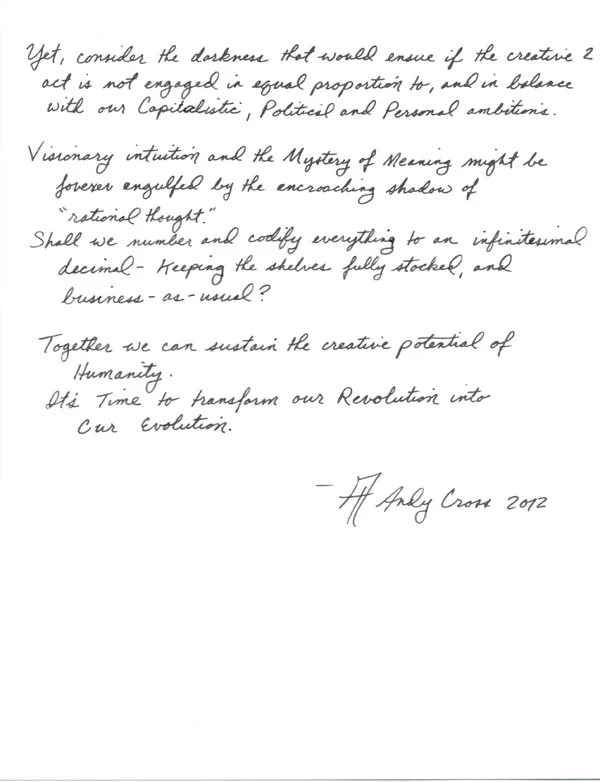 Yet, consider the darkness that would ensue if the creative 2
act is not engaged in equal proportion to, and in balance
with our Capitalistic, Political and Personal ambitions.
Visionary intuition and the Mystery of Meaning might be
forever engulfed by the encroaching shadow of
"rational thought."
Shall we number and codify everything to an infinitesimal
decimal - Keeping the shelves fully stocked, and
business-as-usual?
Together we can sustain the creative potential of
Humanity.
It's Time to transform our Revolution into
Our Evolution.
Andy Cross 2012